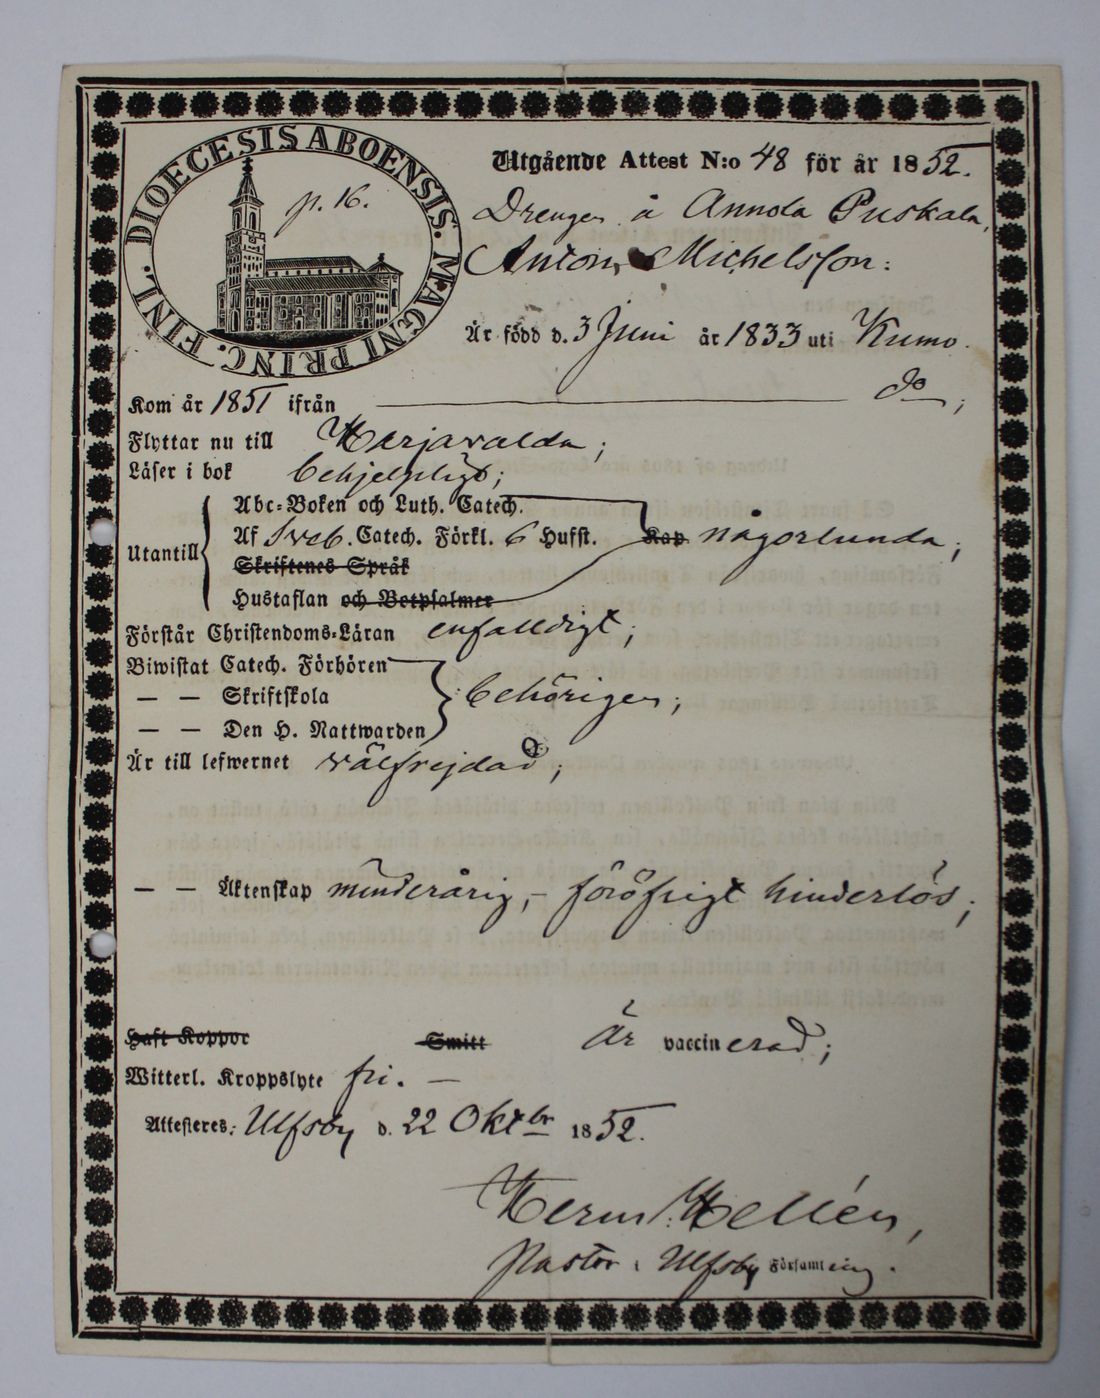 DIOECESIS ABOENSIS. MAGNI PRINC. FINL.
p. 16.
Utgående Attest N:o 48 för år 1852.
Drengen å Annola Puskala,
Anton Michelsson:
Är född d. 3 Juni år 1833 uti Kumo.
Kom år 1851 ifrån do;
Flyttar nu till Harjavalda;
Läser i bok behjelpligt;
Abc-Boken och Luth. Catech.
Utantill Af Sveb. Catech. Förkl. 6 Hufst. Kap någorlunda;
Skriftenes Språk
Hustaflan och Botpsalmer
Förstår Christendoms-Läran enfalldigt;
Biwistat Catech. Förhören
— — Skriftskola behörigen;
— — Den H. Nattwarden
Är till lefwernet välfrejdad;
— — Äktenskap minderårig, – föröfrigt hinderlös;
Haft Koppor Smitt Är vaccinerad;
Witterl. Kroppslyte fri. —
Attesteres: Ulfsby d. 22 Oktbr 1852.
Herm. Hellén,
Pastor i Ulfsby Församling.